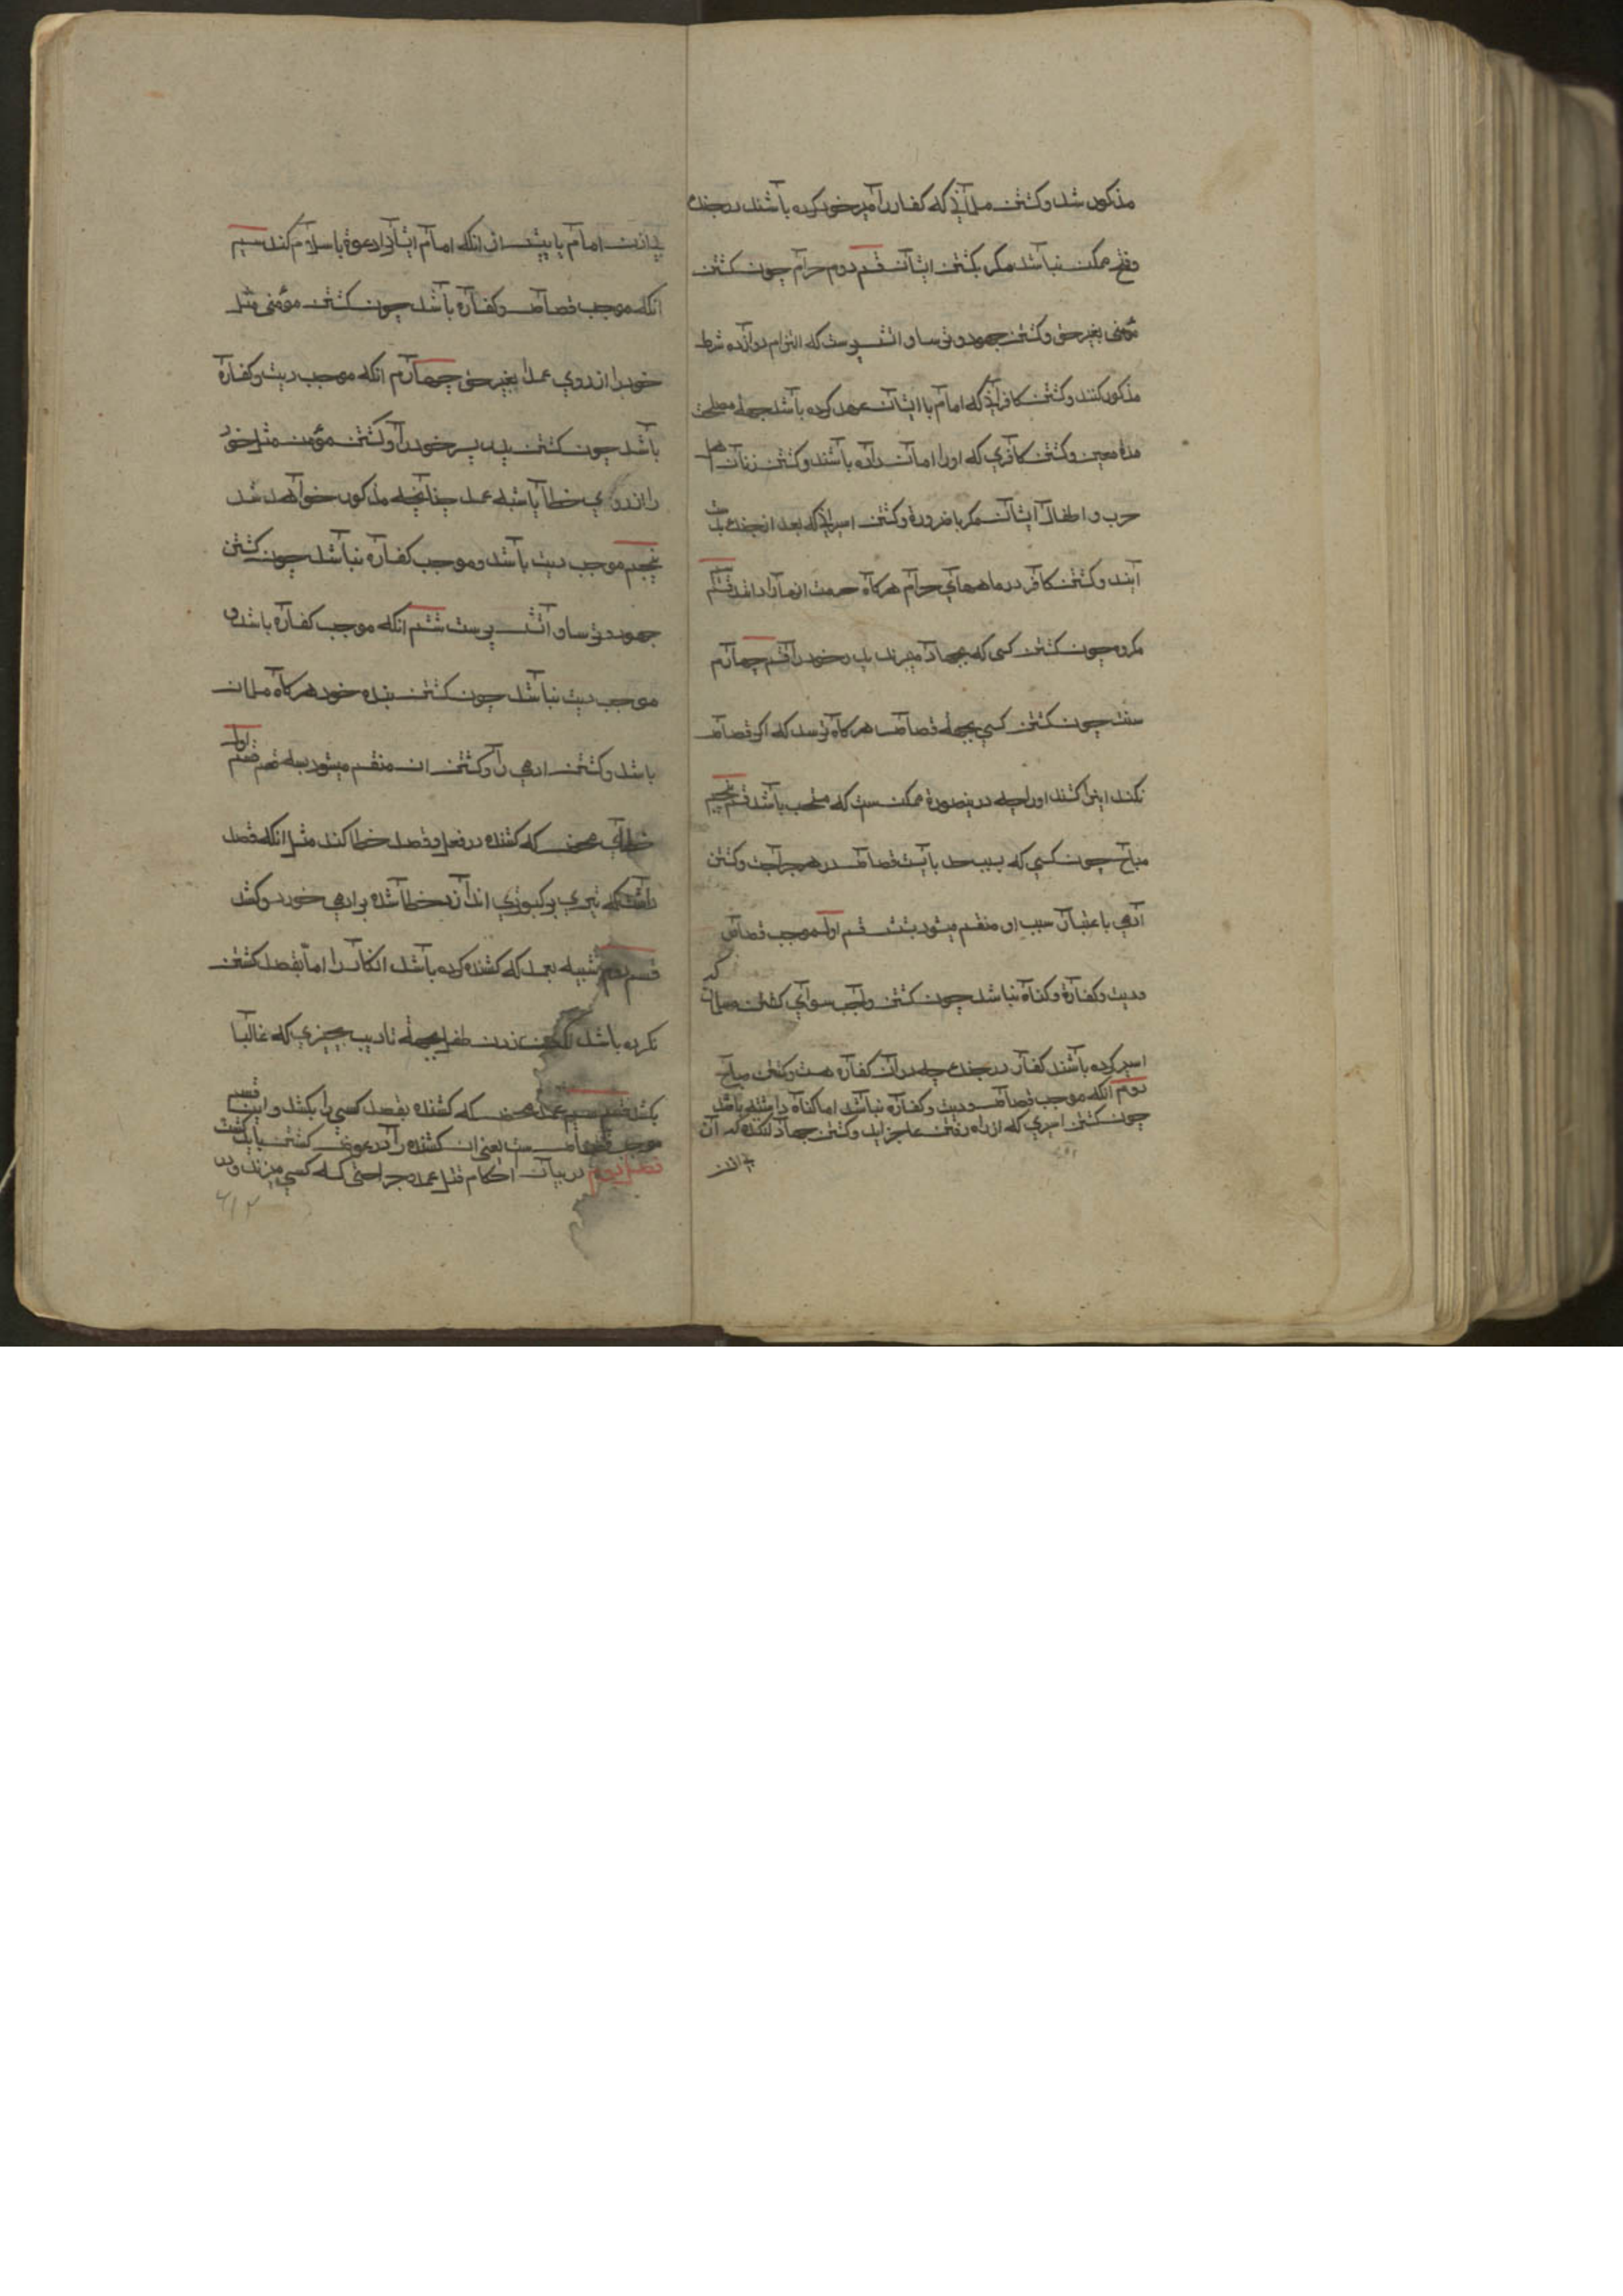 مذکور شد و کشتن مسلمانانی که کفار را امیر خود کرده باشند در جنک
و فتح ممکن نباشد مکر بکشتن ایشان قسم دوم حرام چون کشتن
مؤمنی بغیر حق و کشتن جهود و ترسا و اتش پرست که التزام دوازده شرط
مذکور کنند و کشتن کافرانی که امام با ایشان عهد کرده باشد بجهة مصلحتی
مدة معین و کشتن کافری که او را امان داده باشند و کشتن زنان اهل
حرب و اطفال ایشان مکر با ضرورة و کشتن اسیرانی که بعد از جنک بدست
ایند و کشتن کافر در ماههای حرام هرکاه حرمت ان ماه را دانند قسم
مکروه چون کشتن کسی که بجهاد میرند پدر خود را قسم چهارم
سنت چون کشتن کسی بجهة قصاص هرکاه ترسد که اکر قصاص
نکند این را کشند او را چه درینصورة ممکن ست که مستحب باشد قسم پنجم
مباح چون کسی که بسبب حد یا بسبب قصاص در هر جراحت و کشتن
آدمی باعتبار سبب او منقسم میشود بشش قسم اول موجب قصاص
و دیت و کفارة و کناه نباشد چون کشتن واجب سوای کشتن مسلمان که
اسیر کرده باشند کفار در جنک چه در آن کفاره هست و کشتن مباح
دوم انکه موجب قصاص و دیت و کفاره نباشد اما کناه داشته باشد
چون کشتن اسیری که از راه رفتن عاجز اید و کشتن جهاد کننده که آن
بی اذن
بی اذن امام یا پیش از انکه امام ایشان را دعوة باسلام کند سیم
انکه موجب قصاص و کفاره باشد چون کشتن مؤمنی مثل
خود را از روی عمد بغیر حق چهارم انکه موجب دیت و کفاره
باشد چون کشتن پدر پسر خود را و کشتن مؤمن مثل خود
را از روی خطا یا شبه عمد چنانچه مذکور خواهد شد
پنجم موجب دیت باشد و موجب کفاره نباشد چون کشتن
جهود و ترسا و آتش پرست ششم انکه موجب کفاره باشد و
موجب دیت نباشد چون کشتن بنده خود هرکاه مسلمان
باشد و کشتن ادمی را و کشتن ان منقسم میشود بسه قسم قسم اول
خطای محض که کشنده در فعل و قصد خطا کند مثل انکه قصد
داشت که تیری بر کبوتری اندازد خطا شده بر ادمی خورد و کشد
قسم دوم شبیه بعمد که کشنده کرده باشد ان کار را اما بقصد کشتن
نکرده باشد چون زدن طفل بجهة تادیب بچیزی که غالبا
بکشد قسم سیم عمد محض که کشنده بقصد کسی را بکشد و این قسم
موجب قصاص ست یعنی ان کشنده را در عوض کشتن باید کشت
فصل دوم در بیان احکام قتل عمد و جراحتی که کسی میزند و در